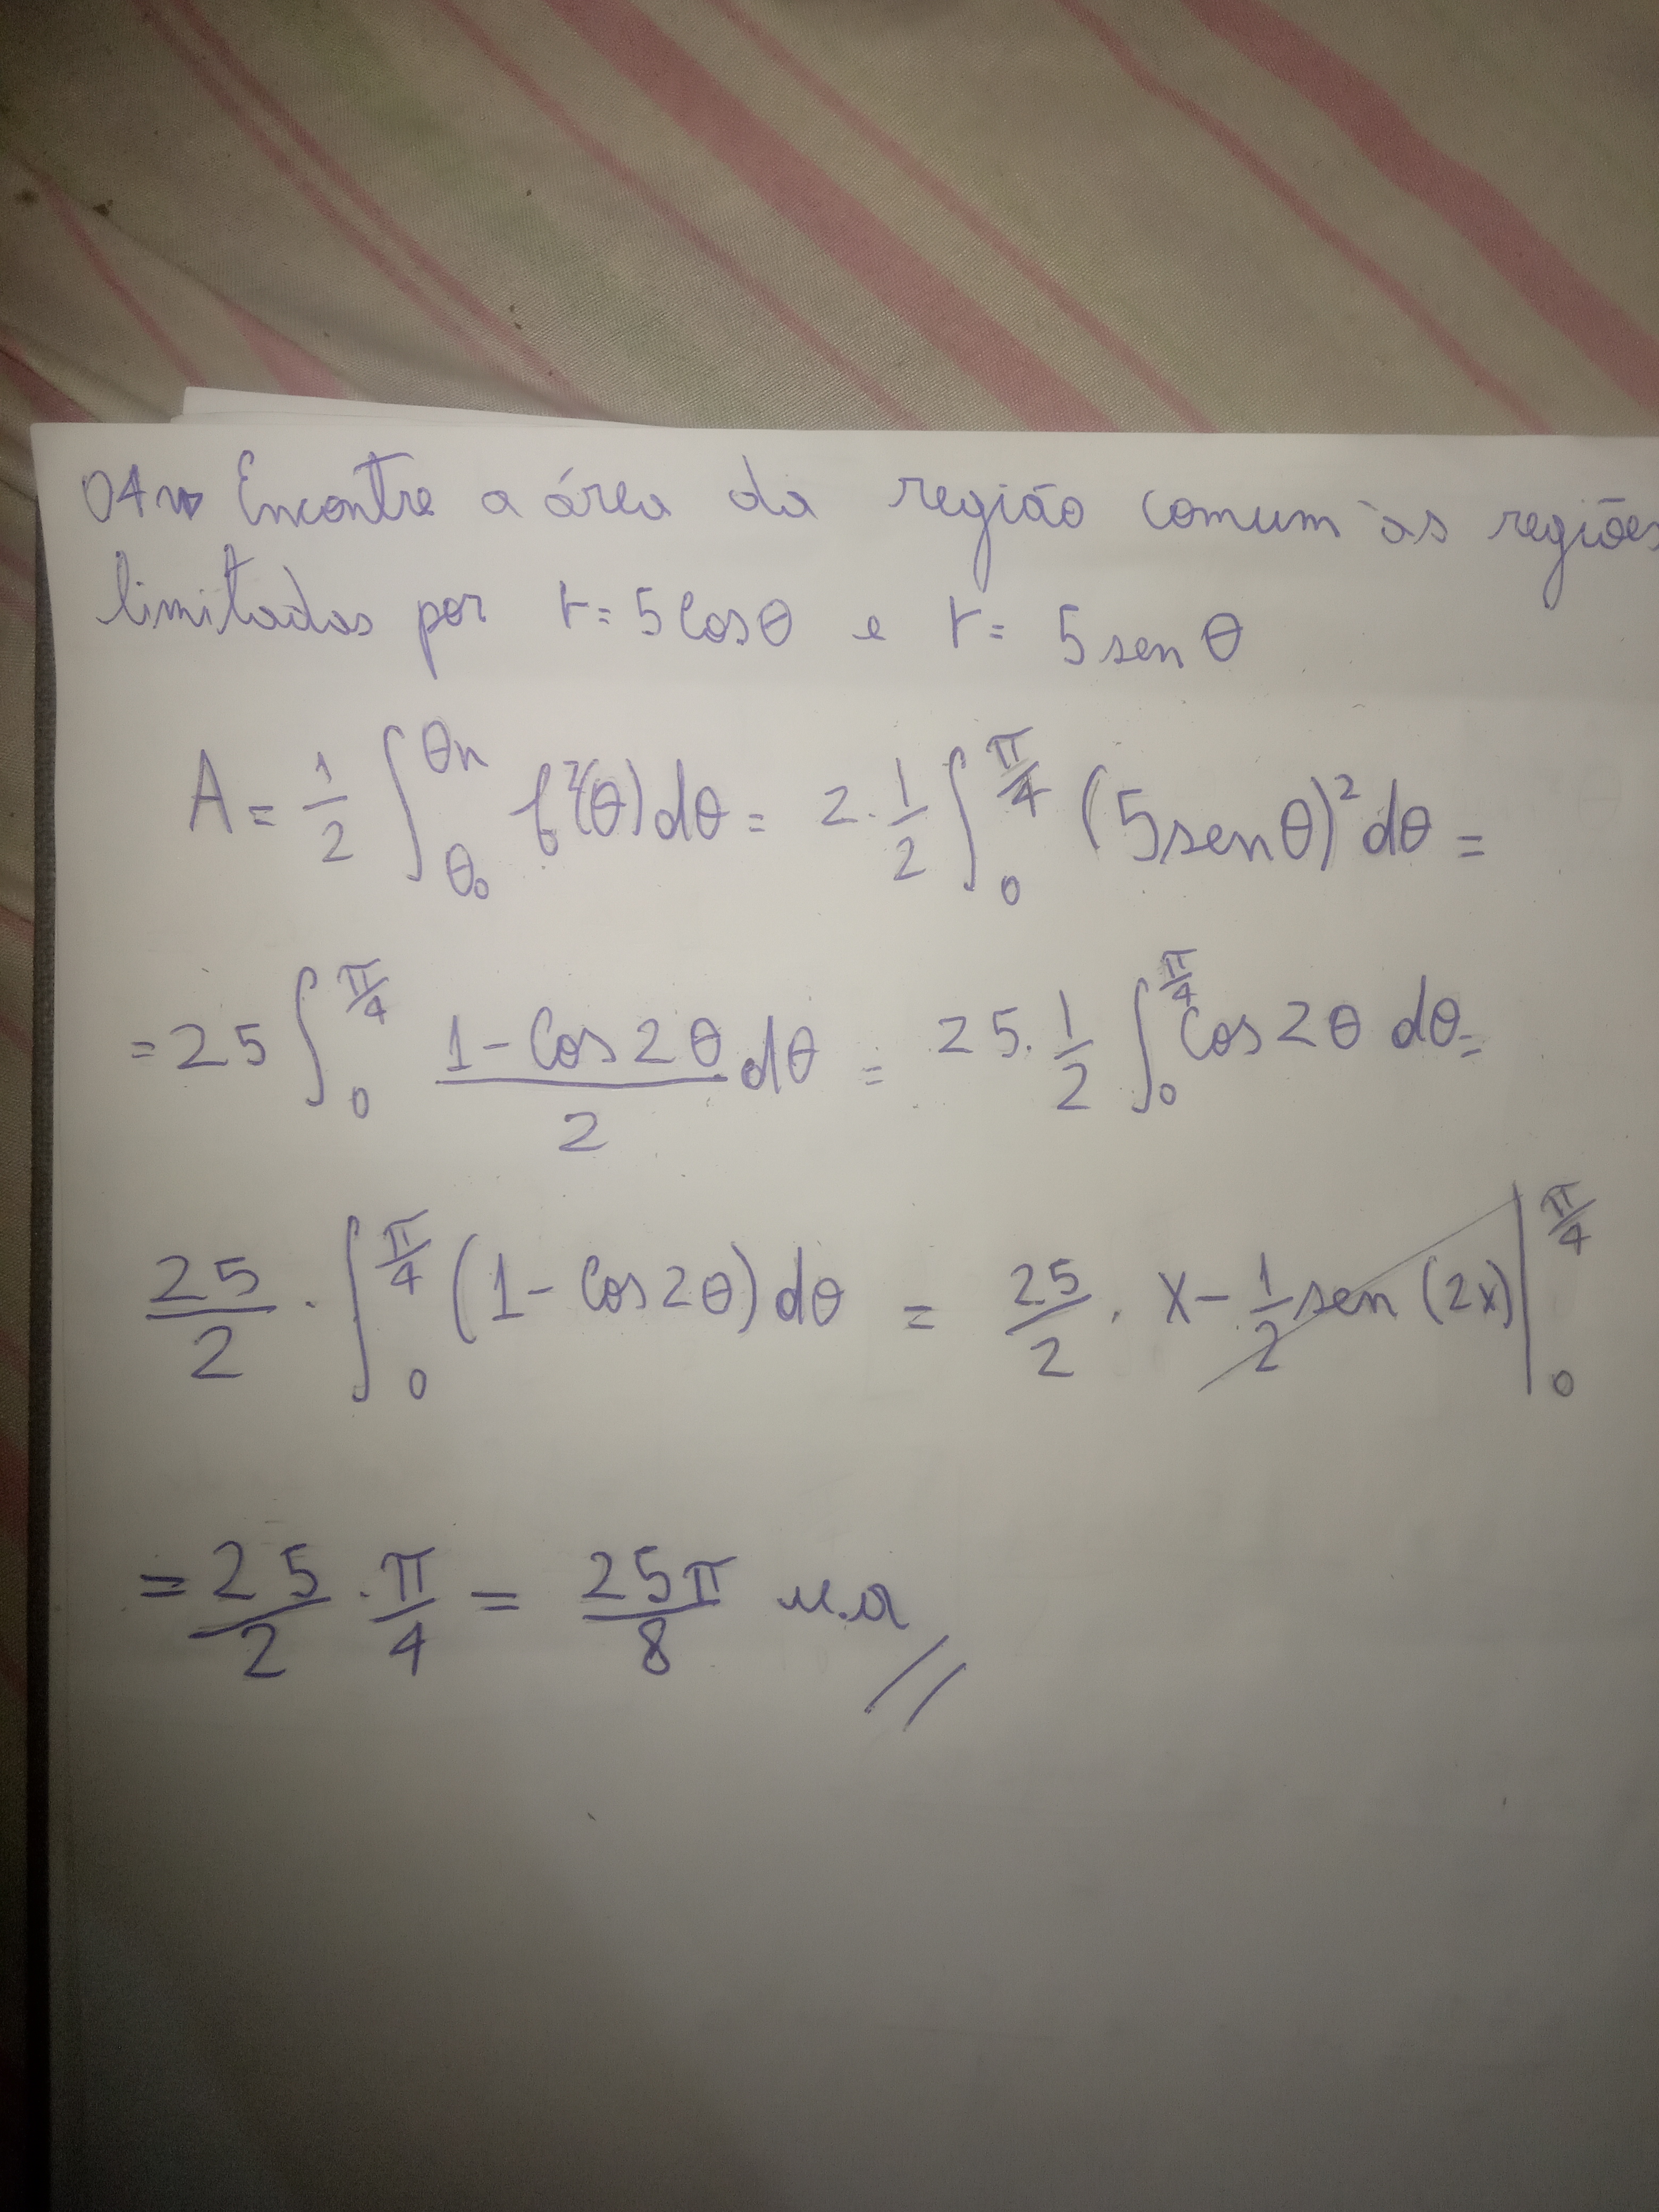 04 Encontre a área da região comum às regiões
limitadas por r = 5 cos θ e r = 5 sen θ
A = 1/2 ∫_{θ₀}^{θn} f²(θ) dθ = 2 · 1/2 ∫_0^{π/4} (5 sen θ)² dθ =
= 25 ∫_0^{π/4} (1 - cos 2θ)/2 dθ = 25 · 1/2 ∫_0^{π/4} cos 2θ dθ =
25/2 · ∫_0^{π/4} (1 - cos 2θ) dθ = 25/2 · x - 1/2 sen (2x) |_0^{π/4}
= 25/2 · π/4 = 25π/8 u.a //